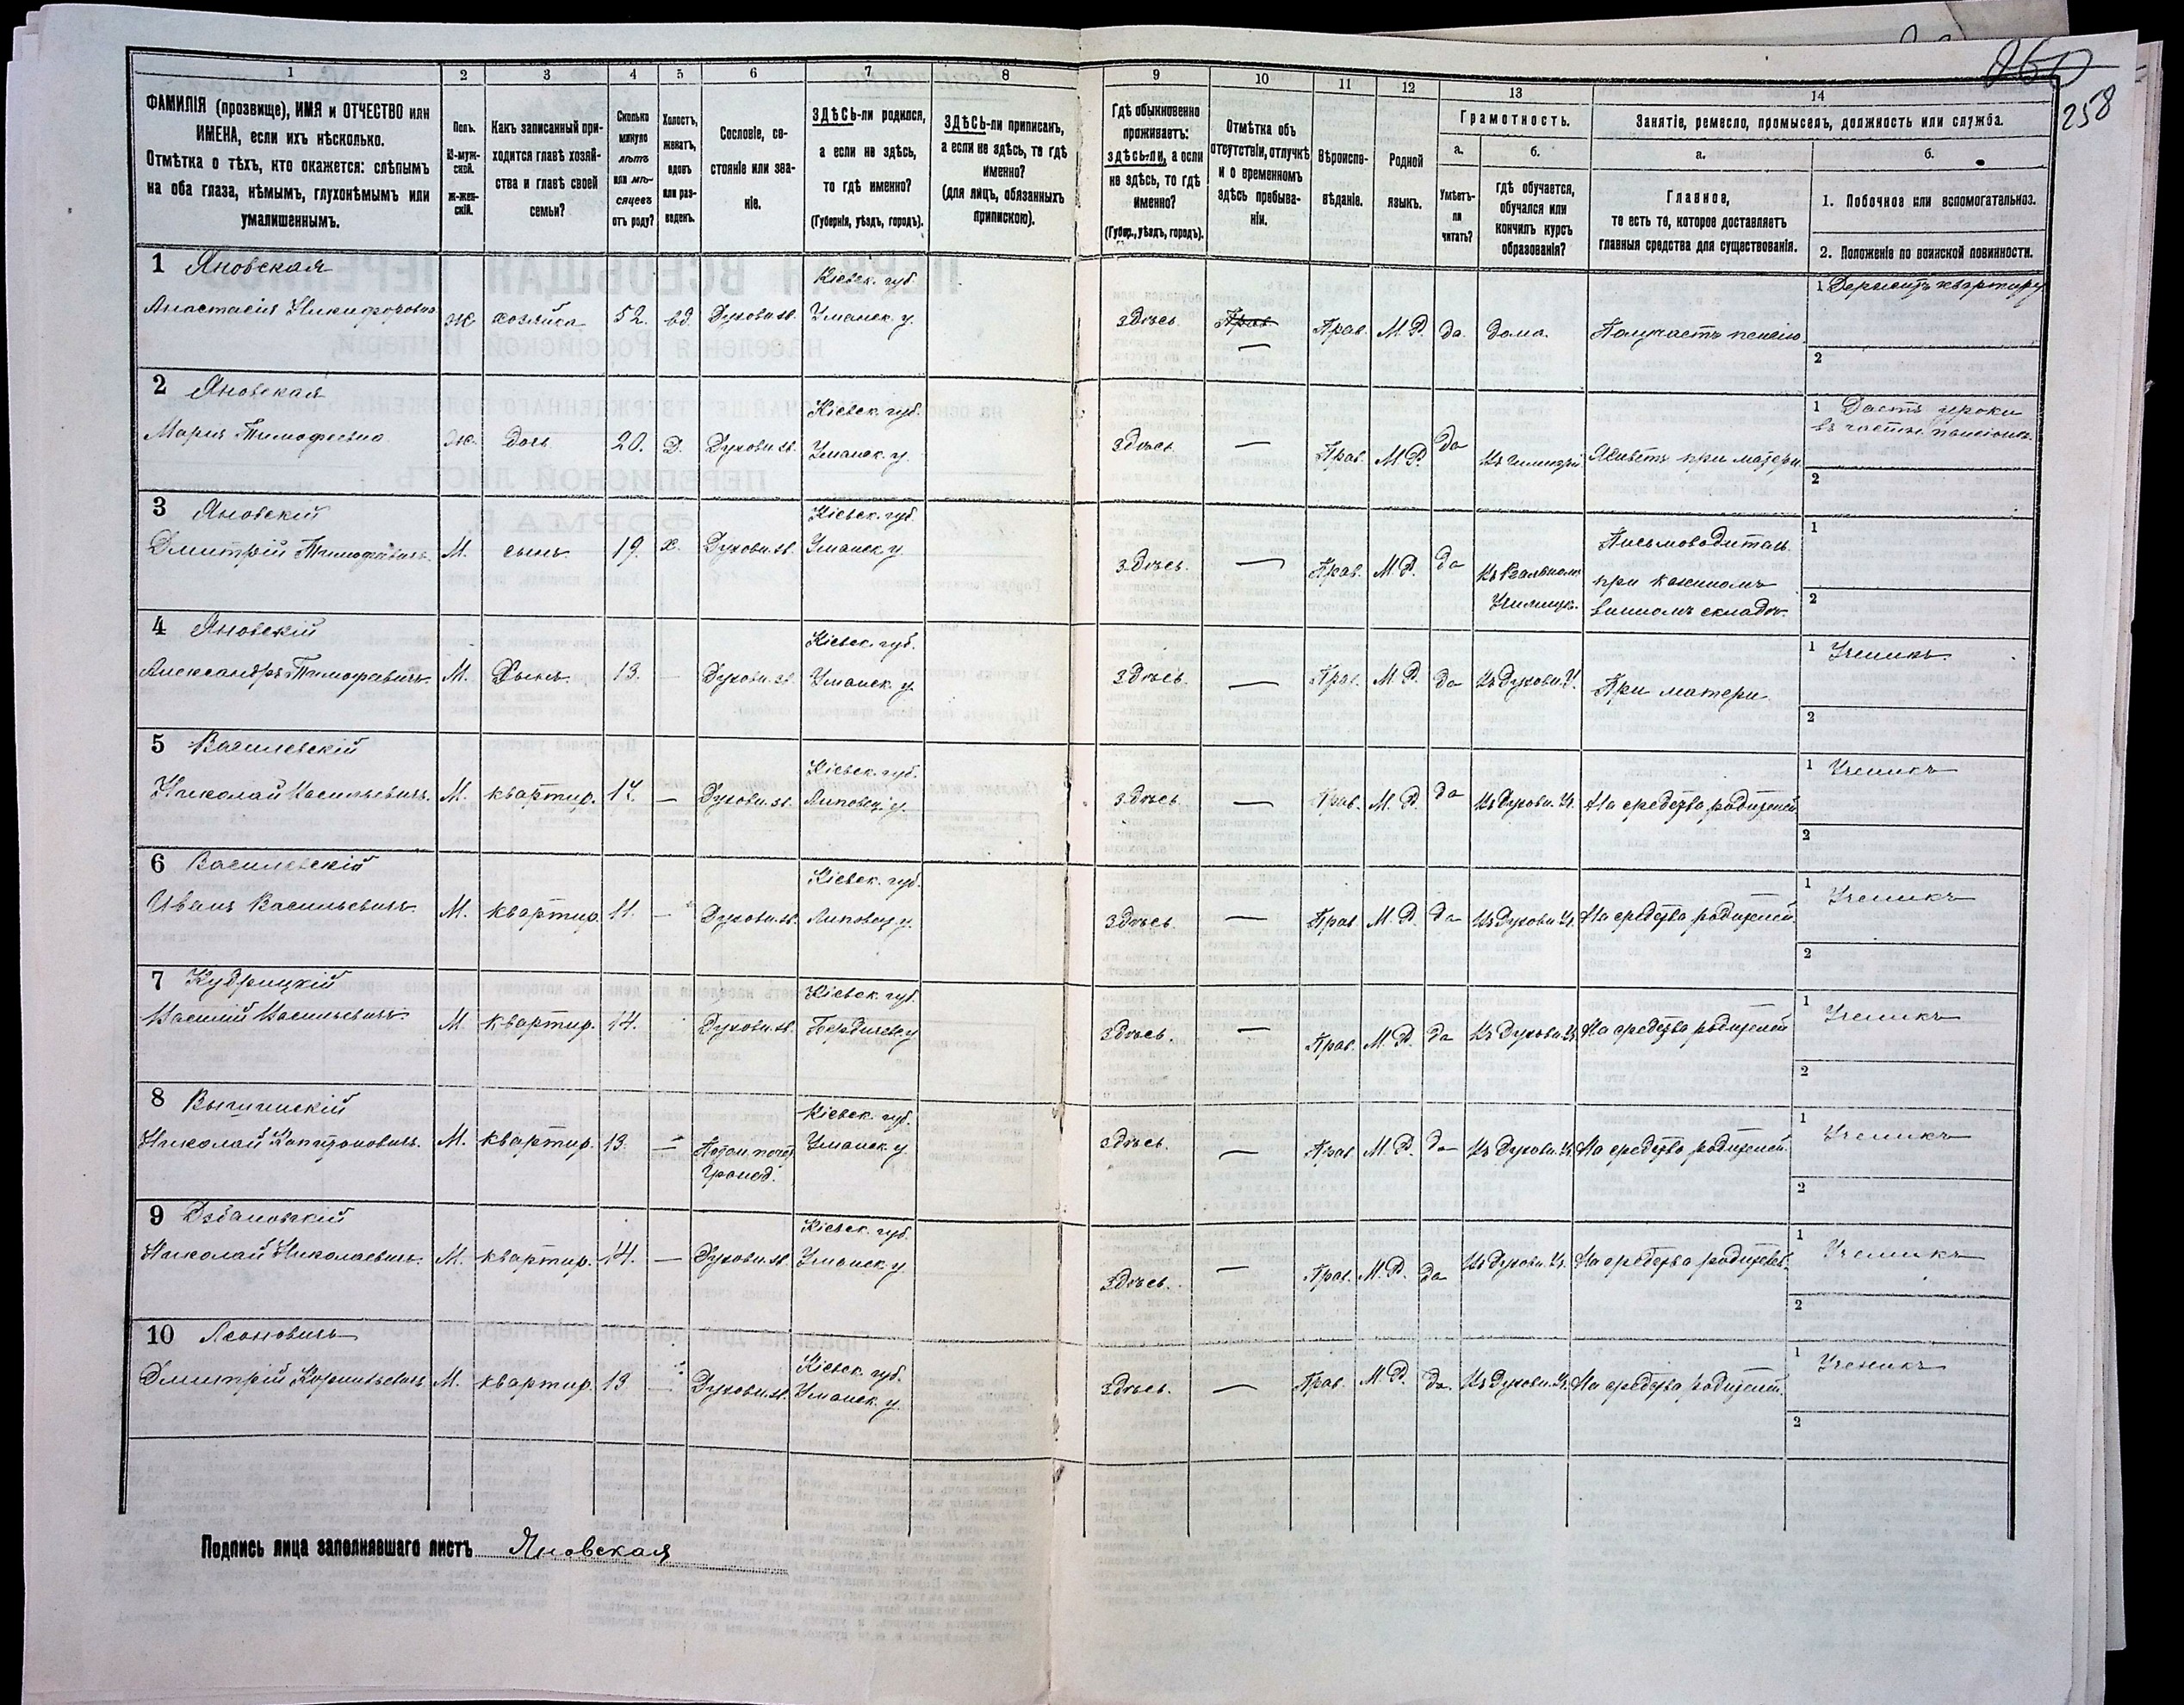 260
258
1 2 3 4 5 6 7 8 9 10 11 12 13 14
ФАМИЛІЯ (прозвище), ИМЯ и ОТЧЕСТВО или
ИМЕНА, если ихъ нѣсколько.
Отмѣтка о тѣхъ, кто окажется: слѣпымъ
на оба глаза, нѣмымъ, глухонѣмымъ или
умалишеннымъ.
Полъ.
М-муж-
ской.
ж-жен-
скій.
Какъ записанный при-
ходится главѣ хозяй-
ства и главѣ своей
семьи?
Сколько
минуло
лѣтъ
или мѣ-
сяцевъ
отъ роду?
Холостъ,
женатъ,
вдовъ
или раз-
веденъ.
Сословіе, со-
стояніе или зва-
ніе.
ЗДѢСЬ-ли родился,
а если не здѣсь,
то гдѣ именно?
(Губернія, уѣздъ, городъ).
ЗДѢСЬ-ли приписанъ,
а если не здѣсь, то гдѣ
именно?
(для лицъ, обязанныхъ
припискою).
Гдѣ обыкновенно
проживаетъ:
здѣсь-ли, а если
не здѣсь, то гдѣ
именно?
(Губер., уѣздъ, городъ).
Отмѣтка объ
отсутствіи, отлучкѣ
и о временномъ
здѣсь пребыва-
ніи.
Вѣроиспо-
вѣданіе.
Родной
языкъ.
Грамотность.
а.
Умѣетъ-
ли
читать?
б.
гдѣ обучается,
обучался или
кончилъ курсъ
образованія?
Занятіе, ремесло, промыселъ, должность или служба.
а.
Главное,
то есть то, которое доставляетъ
главныя средства для существованія.
б.
1. Побочное или вспомогательноз.
2. Положеніе по воинской повинности.
1 Яновская Кіевск. губ. 1 Держитъ квартиру
Анастасія Никифоровна ж хозяйка 52. вд. Духовн.зв. Уманск. у. Здѣсь. Прав. Прав. М.Р. да. дома. Получаетъ пенсію
2
2 Яновская Кіевск. губ. 1 Даетъ уроки
въ частн. пансіонѣ.
Марія Тимофеевна ж. дочь 20. Д. Духовн.зв. Уманск. у. Здѣсь — Прав. М.Р. да Въ гимназіи Живетъ при матери.
2
3 Яновскій Кіевск. губ. 1
Дмитрій Тимофеевичъ. М. сынъ 19. х. Духовн.зв. Уманск. у. Здѣсь. — Прав. М.Р. да Въ Реальномъ Училищѣ. Письмоводитель
при казенномъ
винномъ складѣ.
2
4 Яновскій Кіевск. губ. 1 Ученикъ.
Александръ Тимофеевичъ. М. Сынъ 13. — Духовн.зв. Уманск. у. Здѣсь. — Прав. М.Р. да Въ Духовн.У. При матери
2
5 Василевскій Кіевск. губ. 1 Ученикъ
Николай Васильевичъ. М. квартир. 14. — Духовн.зв. Липовец. у. Здѣсь — Прав. М.Р. да Въ Духовн. Уч. На средства родителей
2
6 Василевскій Кіевск. губ. 1 Ученикъ
Иванъ Васильевичъ. М. квартир. 11. — Духовн.зв. Липовец. у. Здѣсь. — Прав. М.Р. да Въ Духовн. Уч. На средства родителей.
2
7 Кудрицкій Кіевск. губ. 1 Ученикъ
Василій Васильевичъ. М. квартир. 14. Духовн.зв. Бердичев. у. Здѣсь. — Прав. М.Р. да Въ Духовн. Уч. На средства родителей
2
8 Кіевск. губ. 1 Ученикъ
Николай Капитоновичъ. М. квартир. 13. — Потом. почет. Уманск. у. Здѣсь. — Прав. М.Р. да Въ Духовн. Уч. На средства родителей.
гражд.
2
9 Дзбановскій Кіевск. губ. 1 Ученикъ
Николай Николаевичъ. М. квартир. 14. — Духовн.зв. Уманск. у. Здѣсь. — Прав. М.Р. да Въ Духовн. Уч. На средства родителей.
2
10 Леоновичъ Кіевск. губ. 1 Ученикъ
Дмитрій Корнильевичъ М. квартир. 13 — Духовн.зв. Уманск. у. Здѣсь. — Прав. М.Р. да. Въ Духовн. Уч. На средства родителей.
2
Подпись лица заполнявшаго листъ Яновская